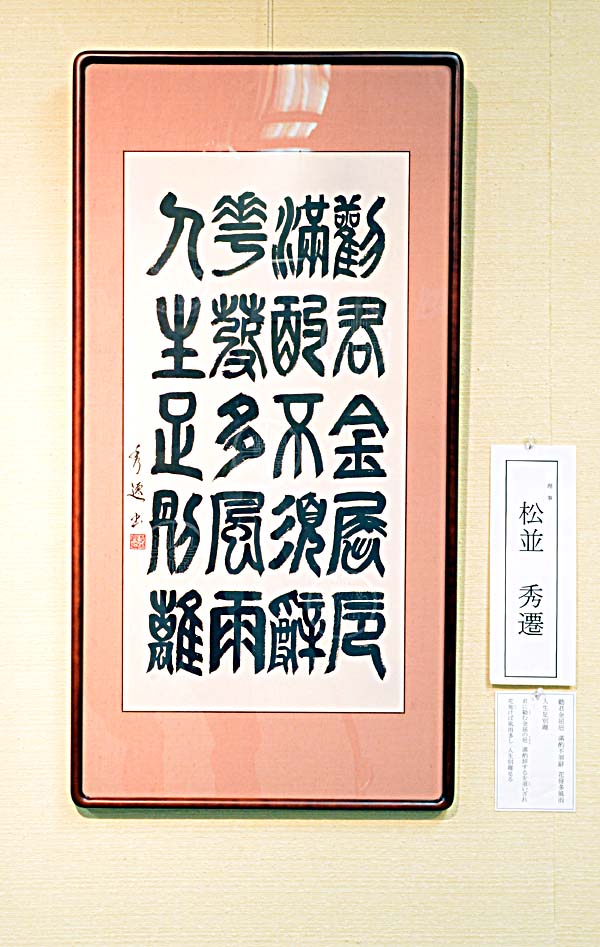 勸君金屈卮
滿酌不須辭
花發多風雨
人生足別離
秀遷書
理事
松並 秀遷
勸君金屈卮 滿酌不須辭 花發多風雨
人生足別離
君に勧む金屈の卮 満酌辞するを須いざれ
花発けば風雨多し 人生別離足る